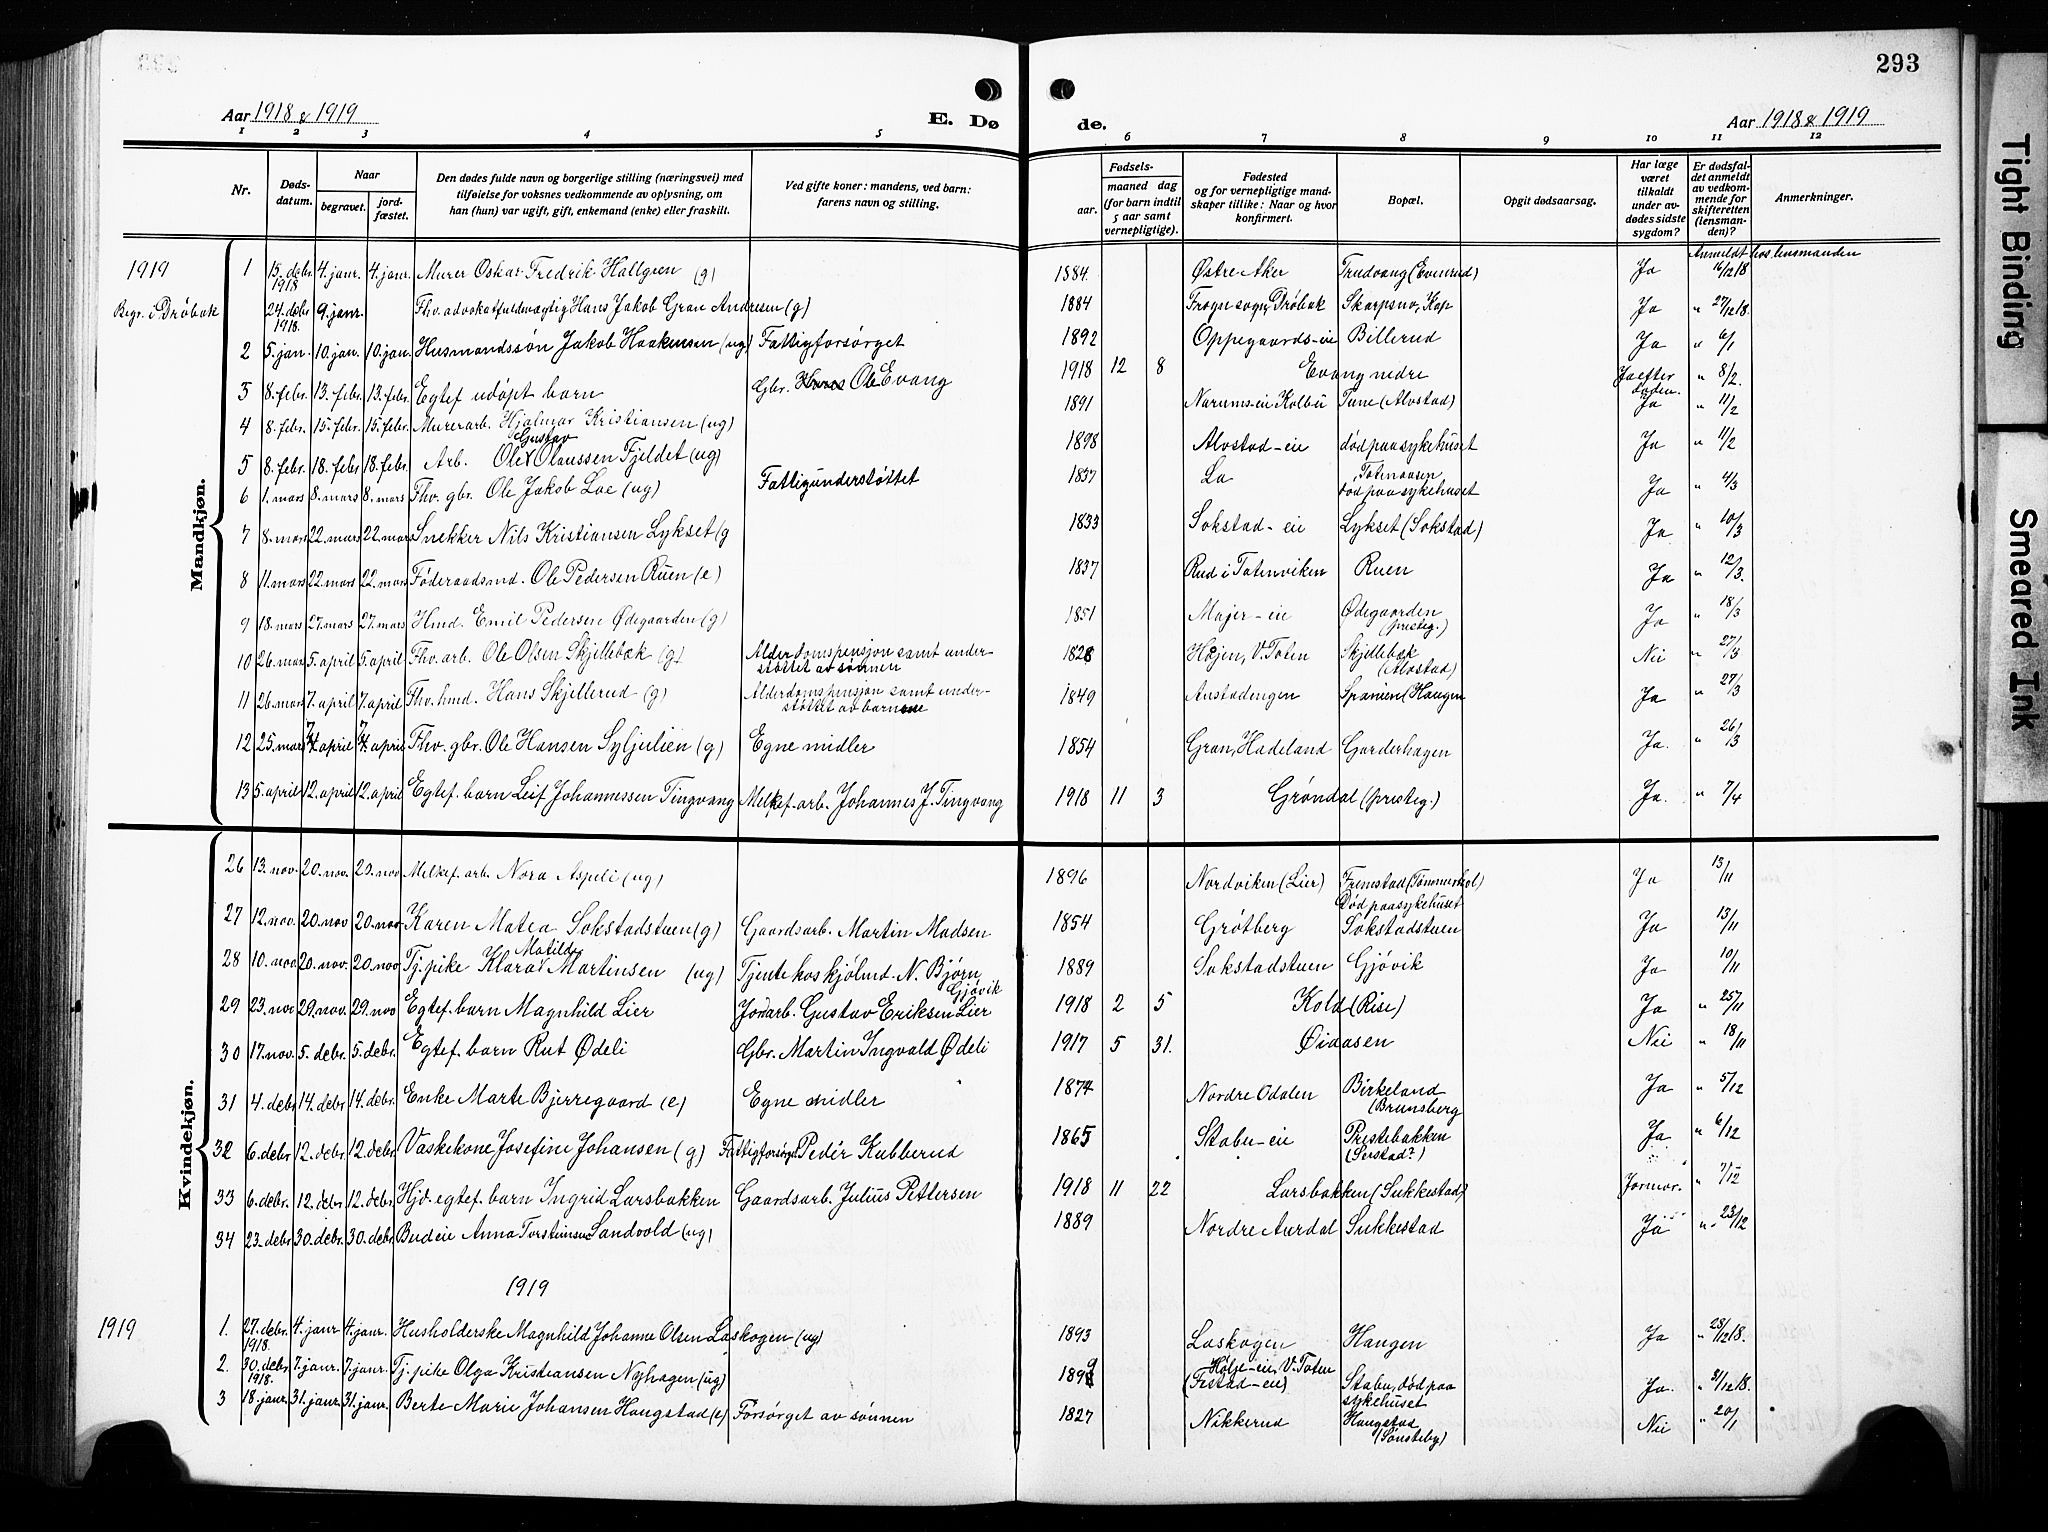 293
Aar 1918 & 1919
E. Dø
de.
Aar 1918 & 1919
1 2 3 4 5 6 7 8 9 10 11 12
Nr.
Døds-datum.
Naar
begravet.
jord-fæstet.
Den dødes fulde navn og borgerlige stilling (næringsvei) med tilføielse for voksnes vedkommende av oplysning, om han (hun) var ugift, gift, enkemand (enke) eller fraskilt.
Ved gifte koner: mandens, ved barn: farens navn og stilling.
Fødsels-
aar.
maaned dag
(for barn indtil 5 aar samt vernepligtige).
Fødested og for vernepligtige mandskaper tillike: Naar og hvor konfirmert.
Bopæl.
Opgit dødsaarsag.
Har læge været tilkaldt under avdødes sidste sygdom?
Er dødsfaldet anmeldt av vedkommende for skifteretten (lensmanden)?
Anmerkninger.
Mandkjøn.
Anmeldt hos lensmanden
1919 1 15. debr. 1918 4. janr. 4. janr. Murer Oskar Fredrik Hallgren (g) 1884. Østre Aker Trudvang (Evenrud) Ja 16/12 18
Begr. i Drøbak 24. debr. 1918. 9. janr. Fhv. advokatfuldmægtig Hans Jakob Gran Andresen (g) 1884 Frogn sogn, Drøbak Skarpsno, Kap Ja " 27/12 18.
2 5. jan. 10. jan. 10. jan. Husmandssøn Jakob Haakensen (ug) Fattigforsørget 1892 Oppegaards-eie Billerud Ja " 6/1
3 8. febr. 13. febr. 13. febr. Egtef. udøpt barn Gbr. Hans Ole Evang 1918 12 8 Evang nedre Ja efter døden. " 8/2.
4 8. febr. 15. febr. 15. febr. Murerarb. Hjalmar Kristiansen (ug) 1891 Narums-eie Kolbu Tune (Alvstad) Ja " 11/2
5 8. febr. 18. febr. 18. febr. Arb. Ole Gustav Olaussen Fjeldet (ug) 1898 Alvstad-eie død paa sykehuset Ja " 11/2
6 1. mars 8. mars 8. mars Fhv. gbr. Ole Jakob Loe (ug) Fattigunderstøttet 1837 Lo Totenaasen død paa sykehuset Ja " 4/3
7 8. mars 22. mars 22. mars Snekker Nils Kristiansen Lykset (g 1833 Sokstad-eie Lykset (Sokstad) Ja " 10/3
8 11. mars 22. mars 22. mars Føderaadsmd. Ole Pedersen Ruen (e) 1837 Rud i Totenviken Ruen Ja " 12/3.
9 18. mars 27. mars 27. mars Hmd. Emil Pedersen Ødegaarden (g) 1851 Majer-eie Ødegaarden (presteg.) Ja " 18/3
10 26. mars 5. april 5. april Fhv. arb. Ole Olsen Skjellebæk (g) Alderdomspensjon samt understøttet av sønnen 1828 Højen, V. Toten Skjellebæk (Alvstad) Nei " 27/3
11 26. mars 7. april 7. april Fhv. hmd. Hans Skjellerud (g) Alderdomspensjon samt understøttet av barnene 1849 Anstadengen Spanien (Haugen Ja " 27/3
12 25. mars 7. april 7. april Fhv. gbr. Ole Hansen Syljulien (g) Egne midler 1854 Gran, Hadeland Garderhagen Ja. " 26/3
13 5. april 12. april 12. april Egtef. barn Leif Johannessen Tingvang Melkef. arb. Johannes J. Tingvang 1918 11 3 Grøndal (presteg.) Ja. " 7/4
Kvindekjøn.
26 13. nov. 20. nov. 20. nov Melkef. arb. Nora Aspeli (ug) 1896 Nordviken (Lier) Fremstad (Tømmerhol) Død paa sykehuset Ja 13/11
27 12. nov. 20. nov 20. nov Karen Matea Sokstadstuen (g) Gaardsarb. Martin Madsen 1854 Grøtberg Sokstadstuen Ja 15/11
28 10. nov 20. nov. 20. nov Tj. pike Klara Matilde Martinsen (ug) Tjente hos kjølmd. N. Bjørn Gjøvik 1889 Sokstadstuen Gjøvik Ja 10/11
29 23. nov 29. nov. 29. nov Egtef. barn Magnhild Lier Jordarb. Gustav Eriksen Lier 1918 2 5 Kold (Rise) Ja " 25/11
30 17. nov. 5. debr. 5. debr. Egtef. barn Rut Ødeli Gbr. Martin Ingvald Ødeli 1917 5 31. Øiaasen Nei " 18/11
31 4. debr. 14. debr. 14. debr. Enke Marte Bjerregaard (e) Egne midler 1874 Nordre Odalen Birkeland (Brunsberg Ja " 5/12
32 6. debr 12. debr. 12. debr. Vaskekone Josefine Johansen (g) Fattigforsørget Peder Kubberud 1865 Stabu-eie Prestebakken (Serstad?) Ja " 6/12
33 6. debr. 12. debr 12. debr. Hjd. egtef. barn Ingrid Larsbakken Gaardsarb. Julius Pettersen 1918 11 22 Larsbakken (Sukkestad) Jormor. " 7/12
34 23. debr 30. debr. 30. debr Budeie Anna Torstensen Sandvold (ug) 1889 Nordre Aurdal Sukkestad Ja " 23/12
1919
1919 1. 27. debr. 1918. 4. janr 4. janr. Husholderske Magnhild Johanne Olsen Loskogen (ug) 1893 Loskogen Haugen Ja " 28/12 18.
2. 30. debr 1918. 7. janr. 7. janr. Tj. pike Olga Kristiansen Nyhagen (ug) 1899 Hølje-eie, V. Toten (Frstad-eie) Stabu, død paa sykehuset Ja. " 31/12 18.
3 18. janr. 31. janr. 31. janr. Berte Marie Johansen Haugstad (e) Forsørget av sønnen 1827 Nikkerud Haugstad (Sønsteby) Nei " 20/1
Tight Binding
Smeared Ink